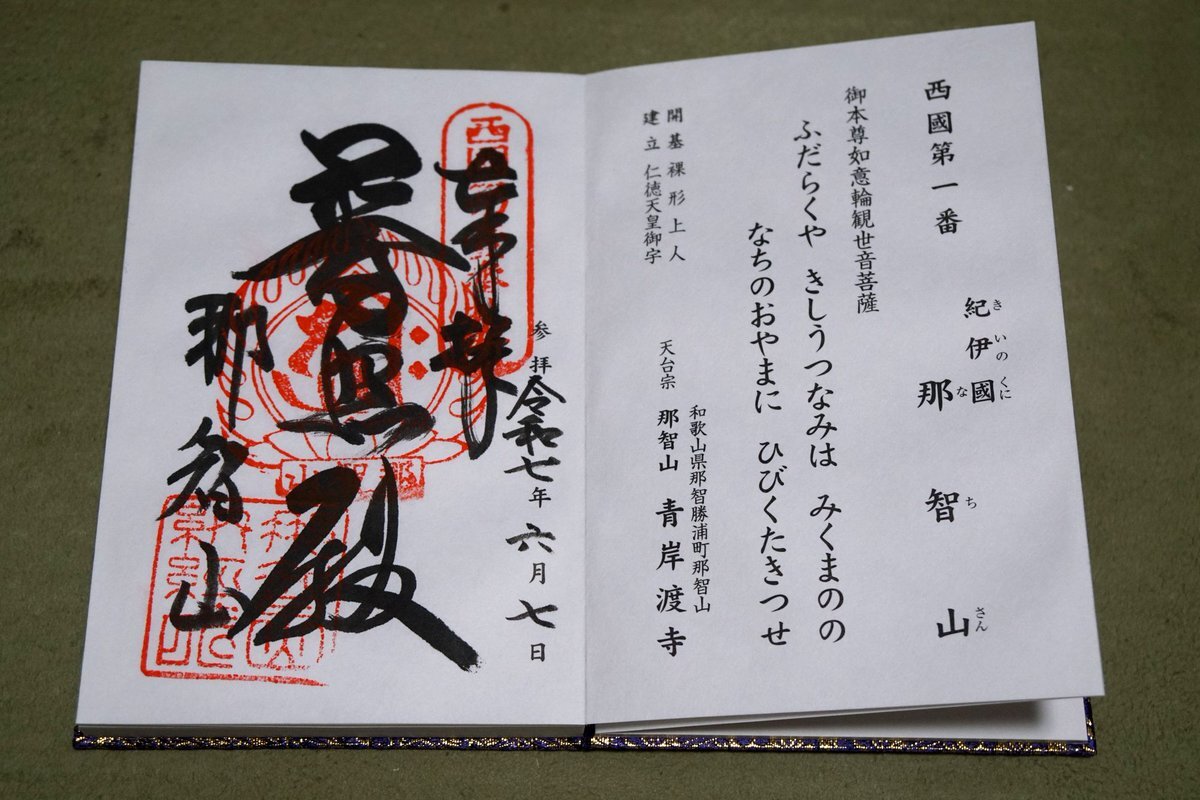 西國第一番
紀伊國
きいのくに
那智山
なちさん
御本尊如意輪観世音菩薩
ふだらくや きしうつなみは みくまのの
なちのおやまに ひびくたきつせ
開基 裸形上人
建立 仁徳天皇御宇
和歌山県那智勝浦町那智山
天台宗 那智山 青岸渡寺
参拝 令和七年 六月 七日
奉拝
普照殿
那智山